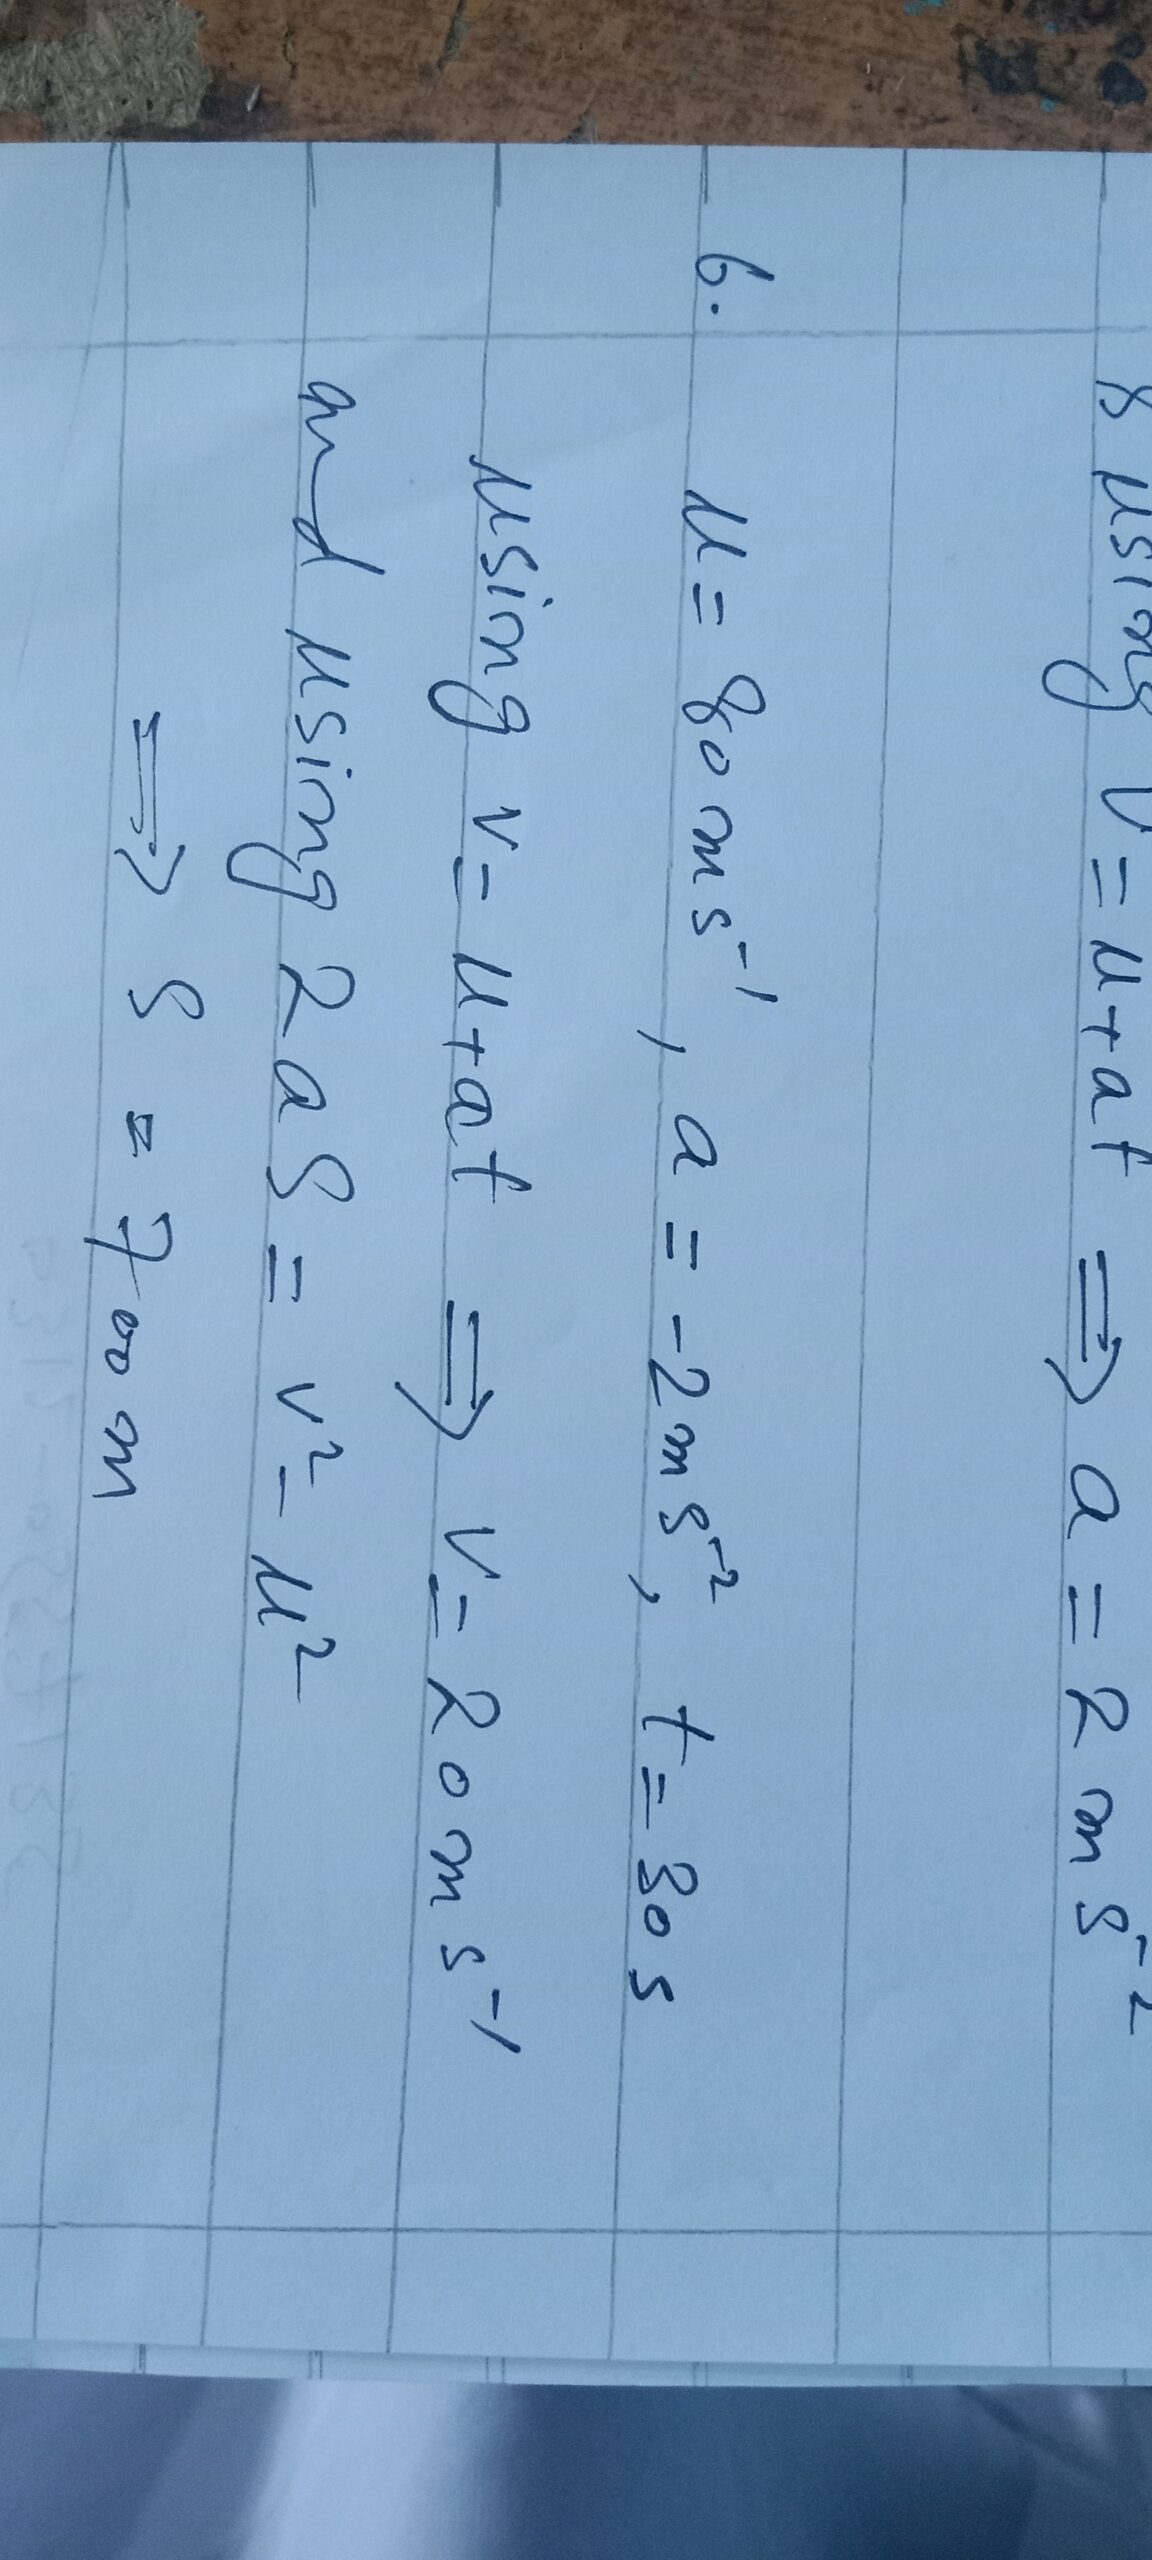 & using v = u + at ⟹ a = 2 ms⁻²
6. u = 80 ms⁻¹, a = -2 ms⁻², t = 30 s
using v = u + at ⟹ v = 20 ms⁻¹
and using 2as = v² - u²
⟹ s =